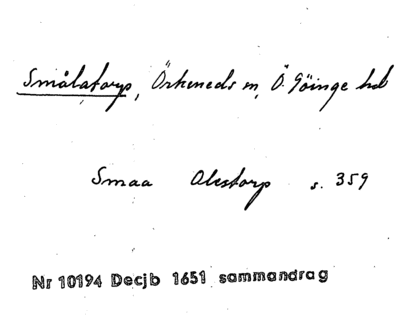 Smålatorp, Örkeneds sn, Ö. Göinge hd
Smaa Olestorp s. 359
Nr 10194 Decjb 1651 sammandrag